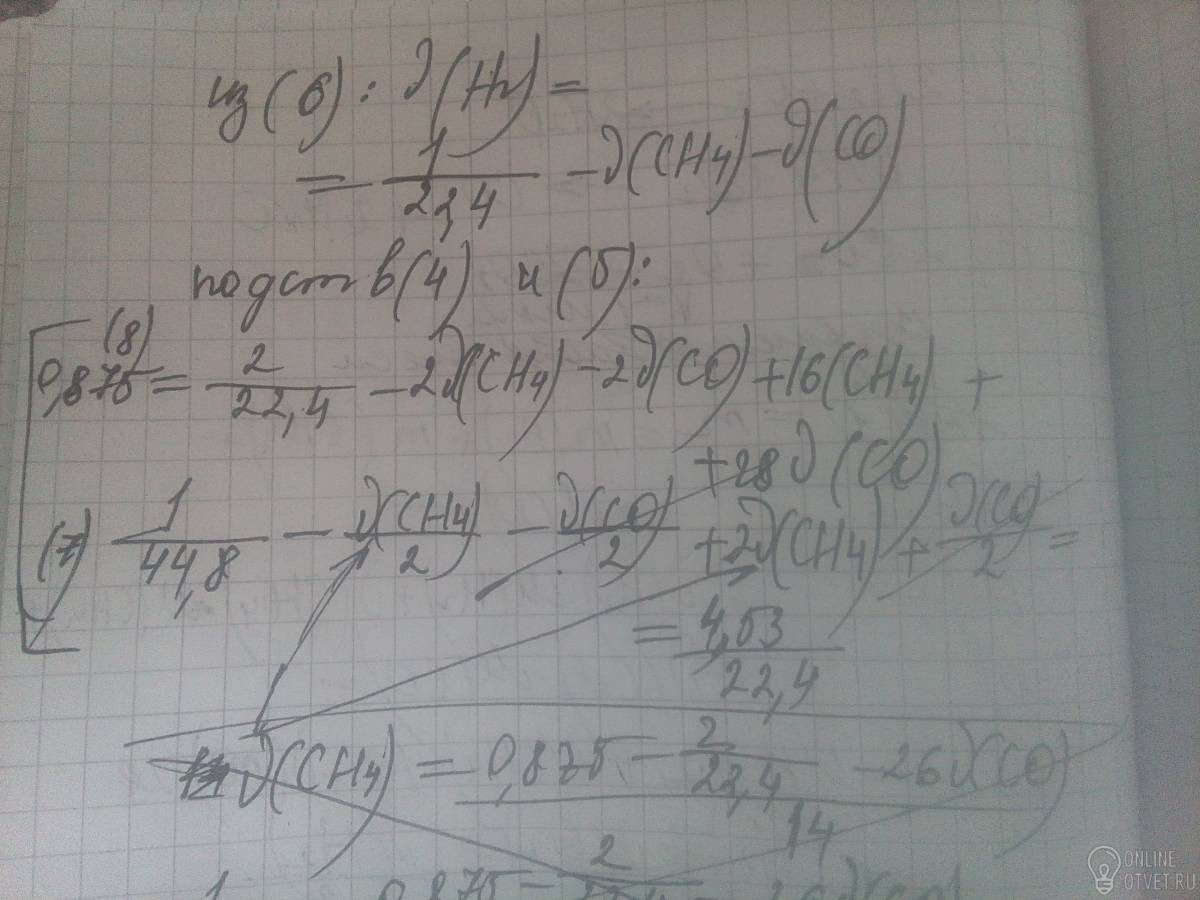 из (6): ν(H2) =
= 1/22,4 - ν(CH4) - ν(CO)
подст в (4) и (5):
(8) 0,875 = 2/22,4 - 2ν(CH4) - 2ν(CO) + 16(CH4) +
+ 28ν(CO)
(7) 1/44,8 - ν(CH4)/2 - ν(CO)/2 + 2ν(CH4) + ν(CO)/2 =
= 4,53/22,4
ν(CH4) = (0,875 - 2/22,4 - 26ν(CO))/14
1 0,875 - 2/22,4 - 26ν(CO)
ONLINE
OTVET.RU